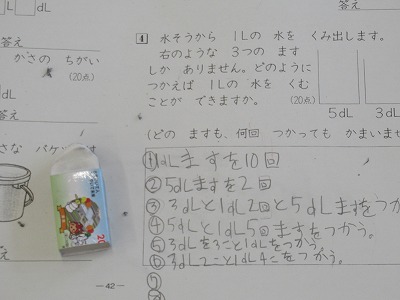 L dL
答え
かさの ちがい
(20点)
dL
答え
さな バケツ
え
— 42 —
答え
4 水そうから 1Lの 水を くみ出します。
右のような 3つの ます
しか ありません。どのように
つかえば 1Lの 水を くむ
ことが できますか。 (20点)
5dL 3dL
(どの ますも、何回 つかっても かまいませ
①1dLますを10回
②5dLますを2回
③3dLと1dL2回と5dLますをつか
④5dLと1dL5回ますをつかう。
⑤3dLを3こと1dLをつかう。
⑥3dL2こと1dL4こをつかう。
⑦